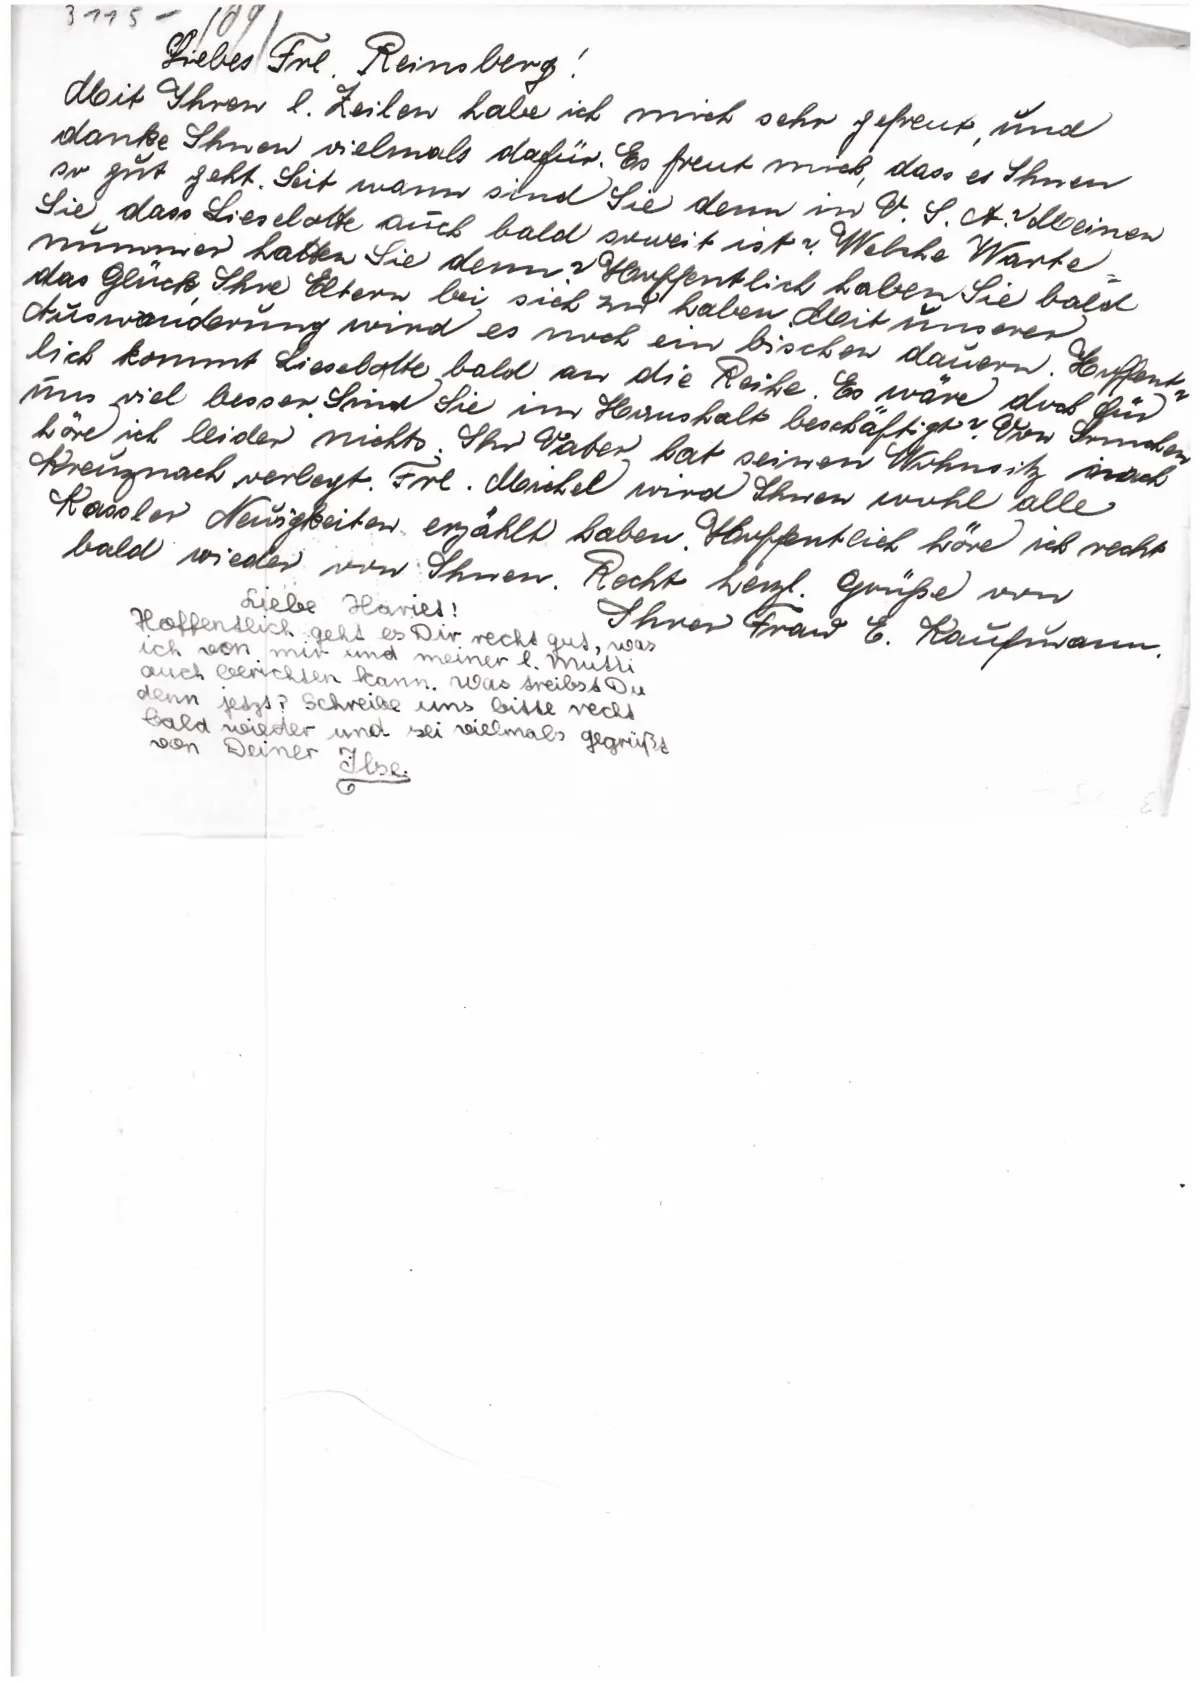 3115 - 1091
Liebes Frl. Reinsberg!
Mit Ihren l. Zeilen habe ich mich sehr gefreut, und
danke Ihnen vielmals dafür. Es freut mich, dass es Ihnen
so gut geht. Seit wann sind Sie denn in U. S. A.? Meinen
Sie, dass Lieselotte auch bald soweit ist? Welche Warte=
nummer hatten Sie denn? Hoffentlich haben Sie bald
das Glück, Ihre Eltern bei sich zu haben. Mit unserer
Auswanderung wird es noch ein bischen dauern. Hoffent=
lich kommt Lieselotte bald an die Reihe. Es wäre doch für
uns viel besser. Sind Sie im Haushalt beschäftigt? Von Irmchen
höre ich leider nichts. Ihr Vater hat seinen Wohnsitz nach
Kreuznach verlegt. Frl. Michel wird Ihnen wohl alle
Kassler Neuigkeiten erzählt haben. Hoffentlich höre ich recht
bald wieder von Ihnen. Recht herzl. Grüße von
Ihrer Frau E. Kaufmann.
Liebe Hariet!
Hoffentlich geht es Dir recht gut, was
ich von mir und meiner l. Mutti
auch berichten kann. Was treibst Du
denn jetzt? Schreibe uns bitte recht
bald wieder und sei vielmals gegrüßt
von Deiner Ilse.